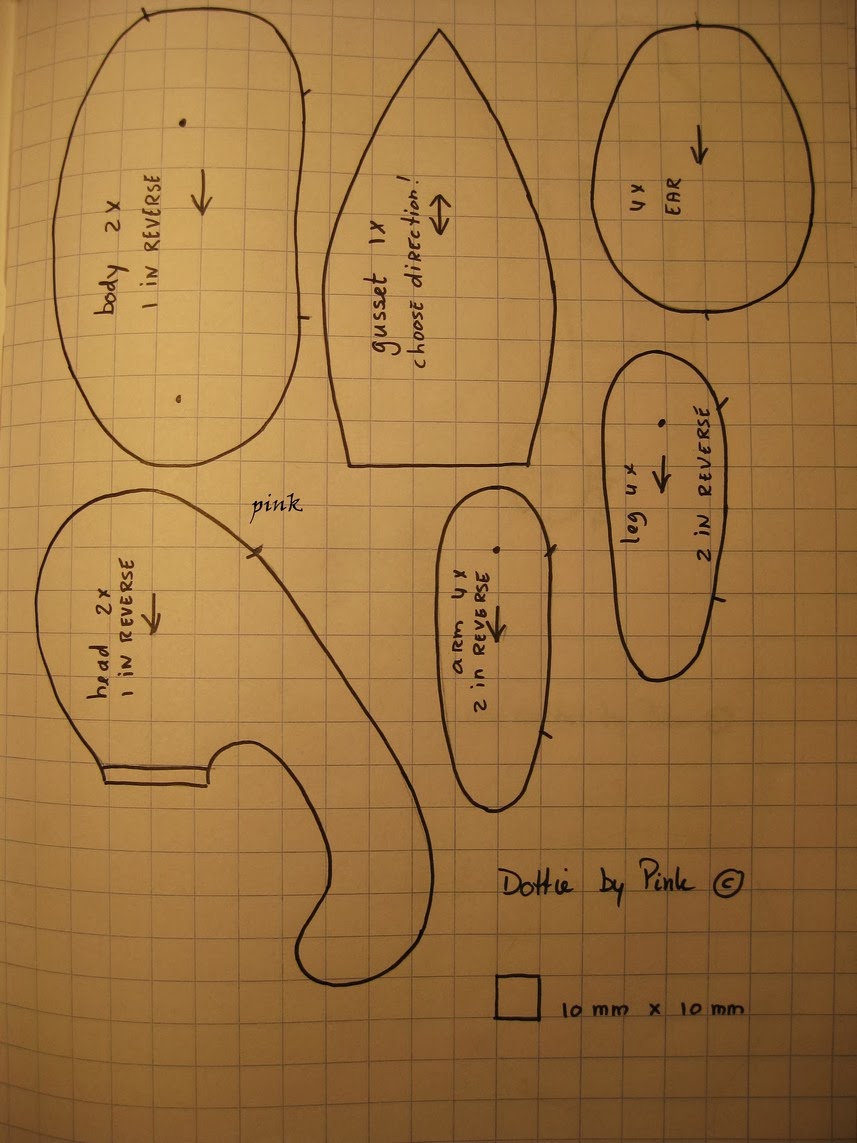 body 2x
1 IN REVERSE
gusset 1x
choose direction!
4x
EAR
leg 4x
2 in REVERSE
pink
head 2x
1 IN REVERSE
arm 4x
2 in REVERSE
Dottie by Pink ©
10 mm x 10 mm